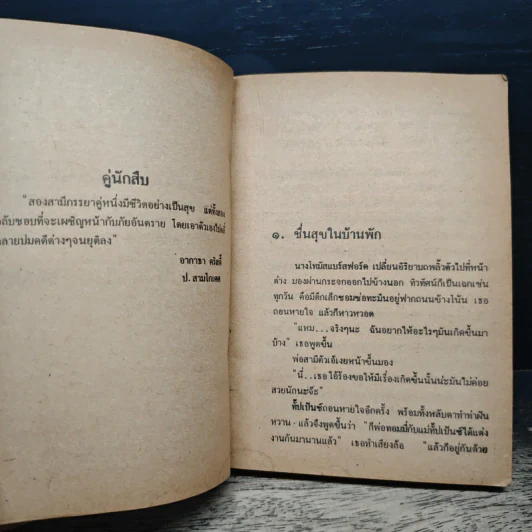 คู่นักสืบ
"สองสามีภรรยาคู่หนึ่งมีชีวิตอย่างเป็นสุข แต่ทั้งสอง
กลับชอบที่จะเผชิญหน้ากับภัยอันตราย โดยเอาตัวเอง
คลายปมคดีต่างๆจนยุติลง"
อากาธา คริสตี้
ป. สามโกเศศ
๑. ชื่นสุขในบ้านพัก
นางโทมัสแบร์สฟอร์ด เปลี่ยนอิริยาบถพลิ้วตัวไปที่หน้า
ต่าง มองผ่านกระจกออกไปข้างนอก ทิวทัศน์ก็เป็นเฉกเช่น
ทุกวัน คือมีตึกเล็กซอมซ่อทะมึนอยู่ฟากถนนข้างโน้น เธอ
ถอนหายใจ แล้วก็หาวหวอด
"แหม...จริงๆนะ ฉันอยากให้อะไรๆมันเกิดขึ้นมา
บ้าง" เธอพูดขึ้น
พ่อสามีตัวเอ้เงยหน้าขึ้นมอง
"นี่..เธอไอ้ร้องขอให้มีเรื่องเกิดขึ้นนั้นน่ะมันไม่ค่อย
สวยนักนะจ๊ะ"
ทั๊ปเป้นซ์ถอนหายใจอีกครั้ง พร้อมทั้งหลับตาทำท่าฝัน
หวาน แล้วจึงพูดขึ้นว่า "ก็พ่อทอมมี่กับแม่ทั๊ปเป้นซ์ได้แต่ง
งานกันมานานแล้ว" เธอทำเสียงล้อ "แล้วก็อยู่กันด้วย